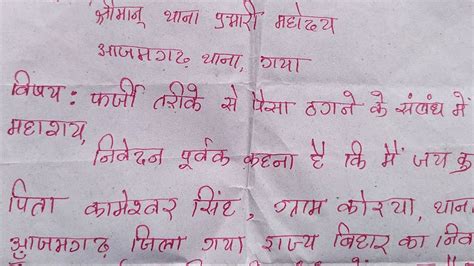 श्रीमान् थाना प्रभारी महोदय
आजमगढ़ थाना, गया
विषय: फर्जी तरीके से पैसा ठगने के संबंध में
महाशय,
निवेदन पूर्वक कहना है कि मैं जय कु
पिता कामेश्वर सिंह, ग्राम कोरया, थान
आजमगढ़ जिला गया राज्य बिहार का निव